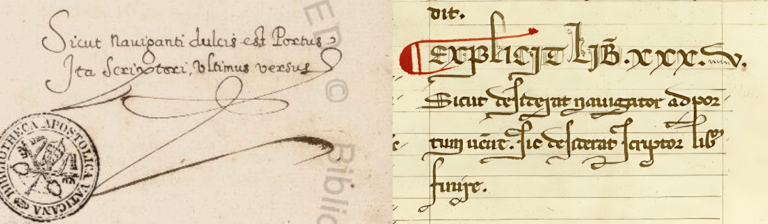 Sicut naviganti dulcis est Portus
Ita Scriptori, Ultimus versus
BIBLIOTHECA APOSTOLICA VATICANA
dit.
Explicit Lib. xxx.v.
Sicut desiderat navigator ad por
tum venire. sic desiderat scriptor lib
finire.